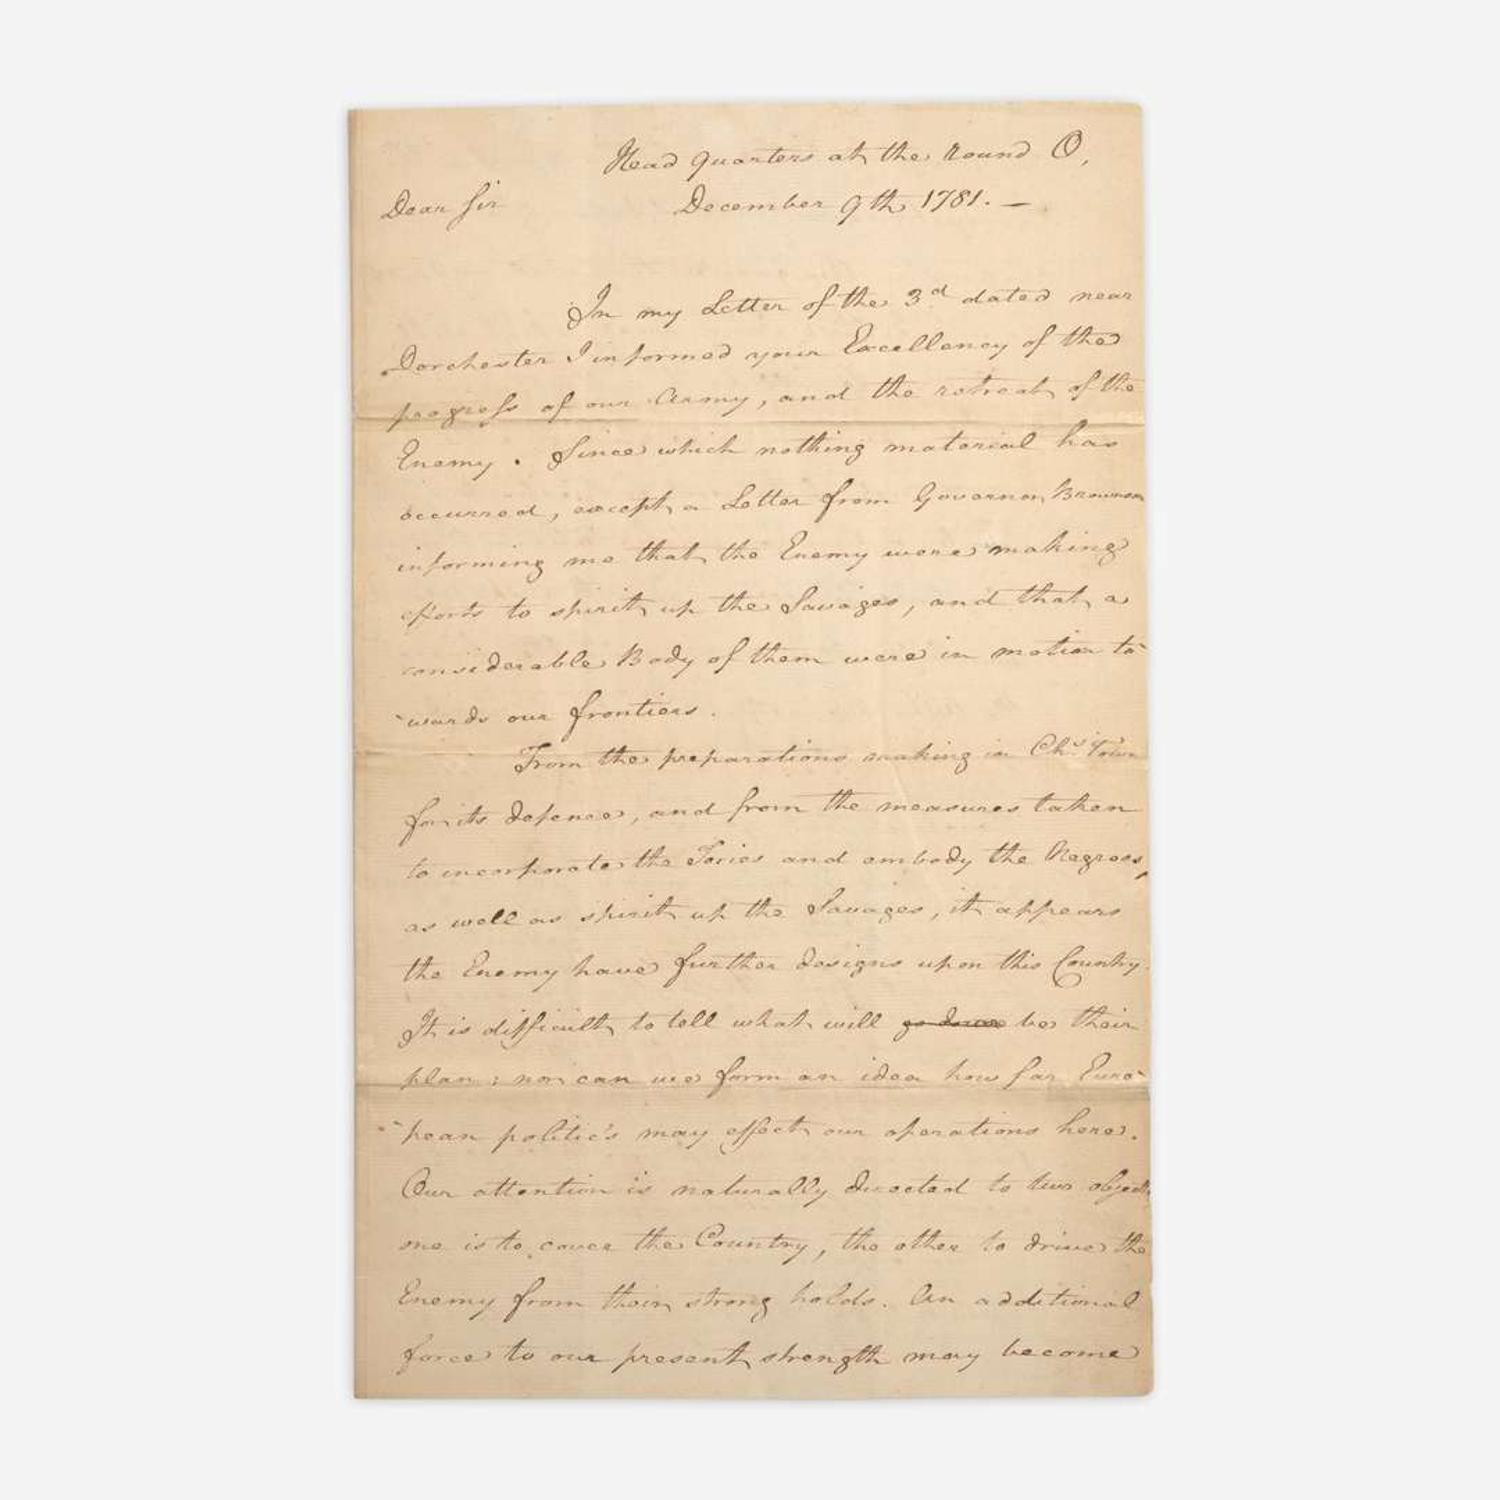 Head quarters at the round O,
Dear Sir December 9th 1781. —
In my Letter of the 3d dated near
Dorchester I informed your Excellency of the
progress of our Army, and the retreat of the
Enemy. Since which nothing material has
occurred, except a Letter from Governor Brownson
informing me that the Enemy were making
efforts to spirit up the Savages, and that a
considerable Body of them were in motion to-
-wards our frontiers.
From the preparations making in Chs Town
for its defence, and from the measures taken
to incorporate the Tories and embody the Negroes,
as well as spirit up the Savages, it appears
the Enemy have further designs upon this Country.
It is difficult to tell what will be their
plan; nor can we form an idea how far Euro-
-pean politic's may effect our operations here.
Our attention is naturally directed to two objects
one is to cover the Country, the other to drive the
Enemy from their strong holds. An additional
force to our present strength may become